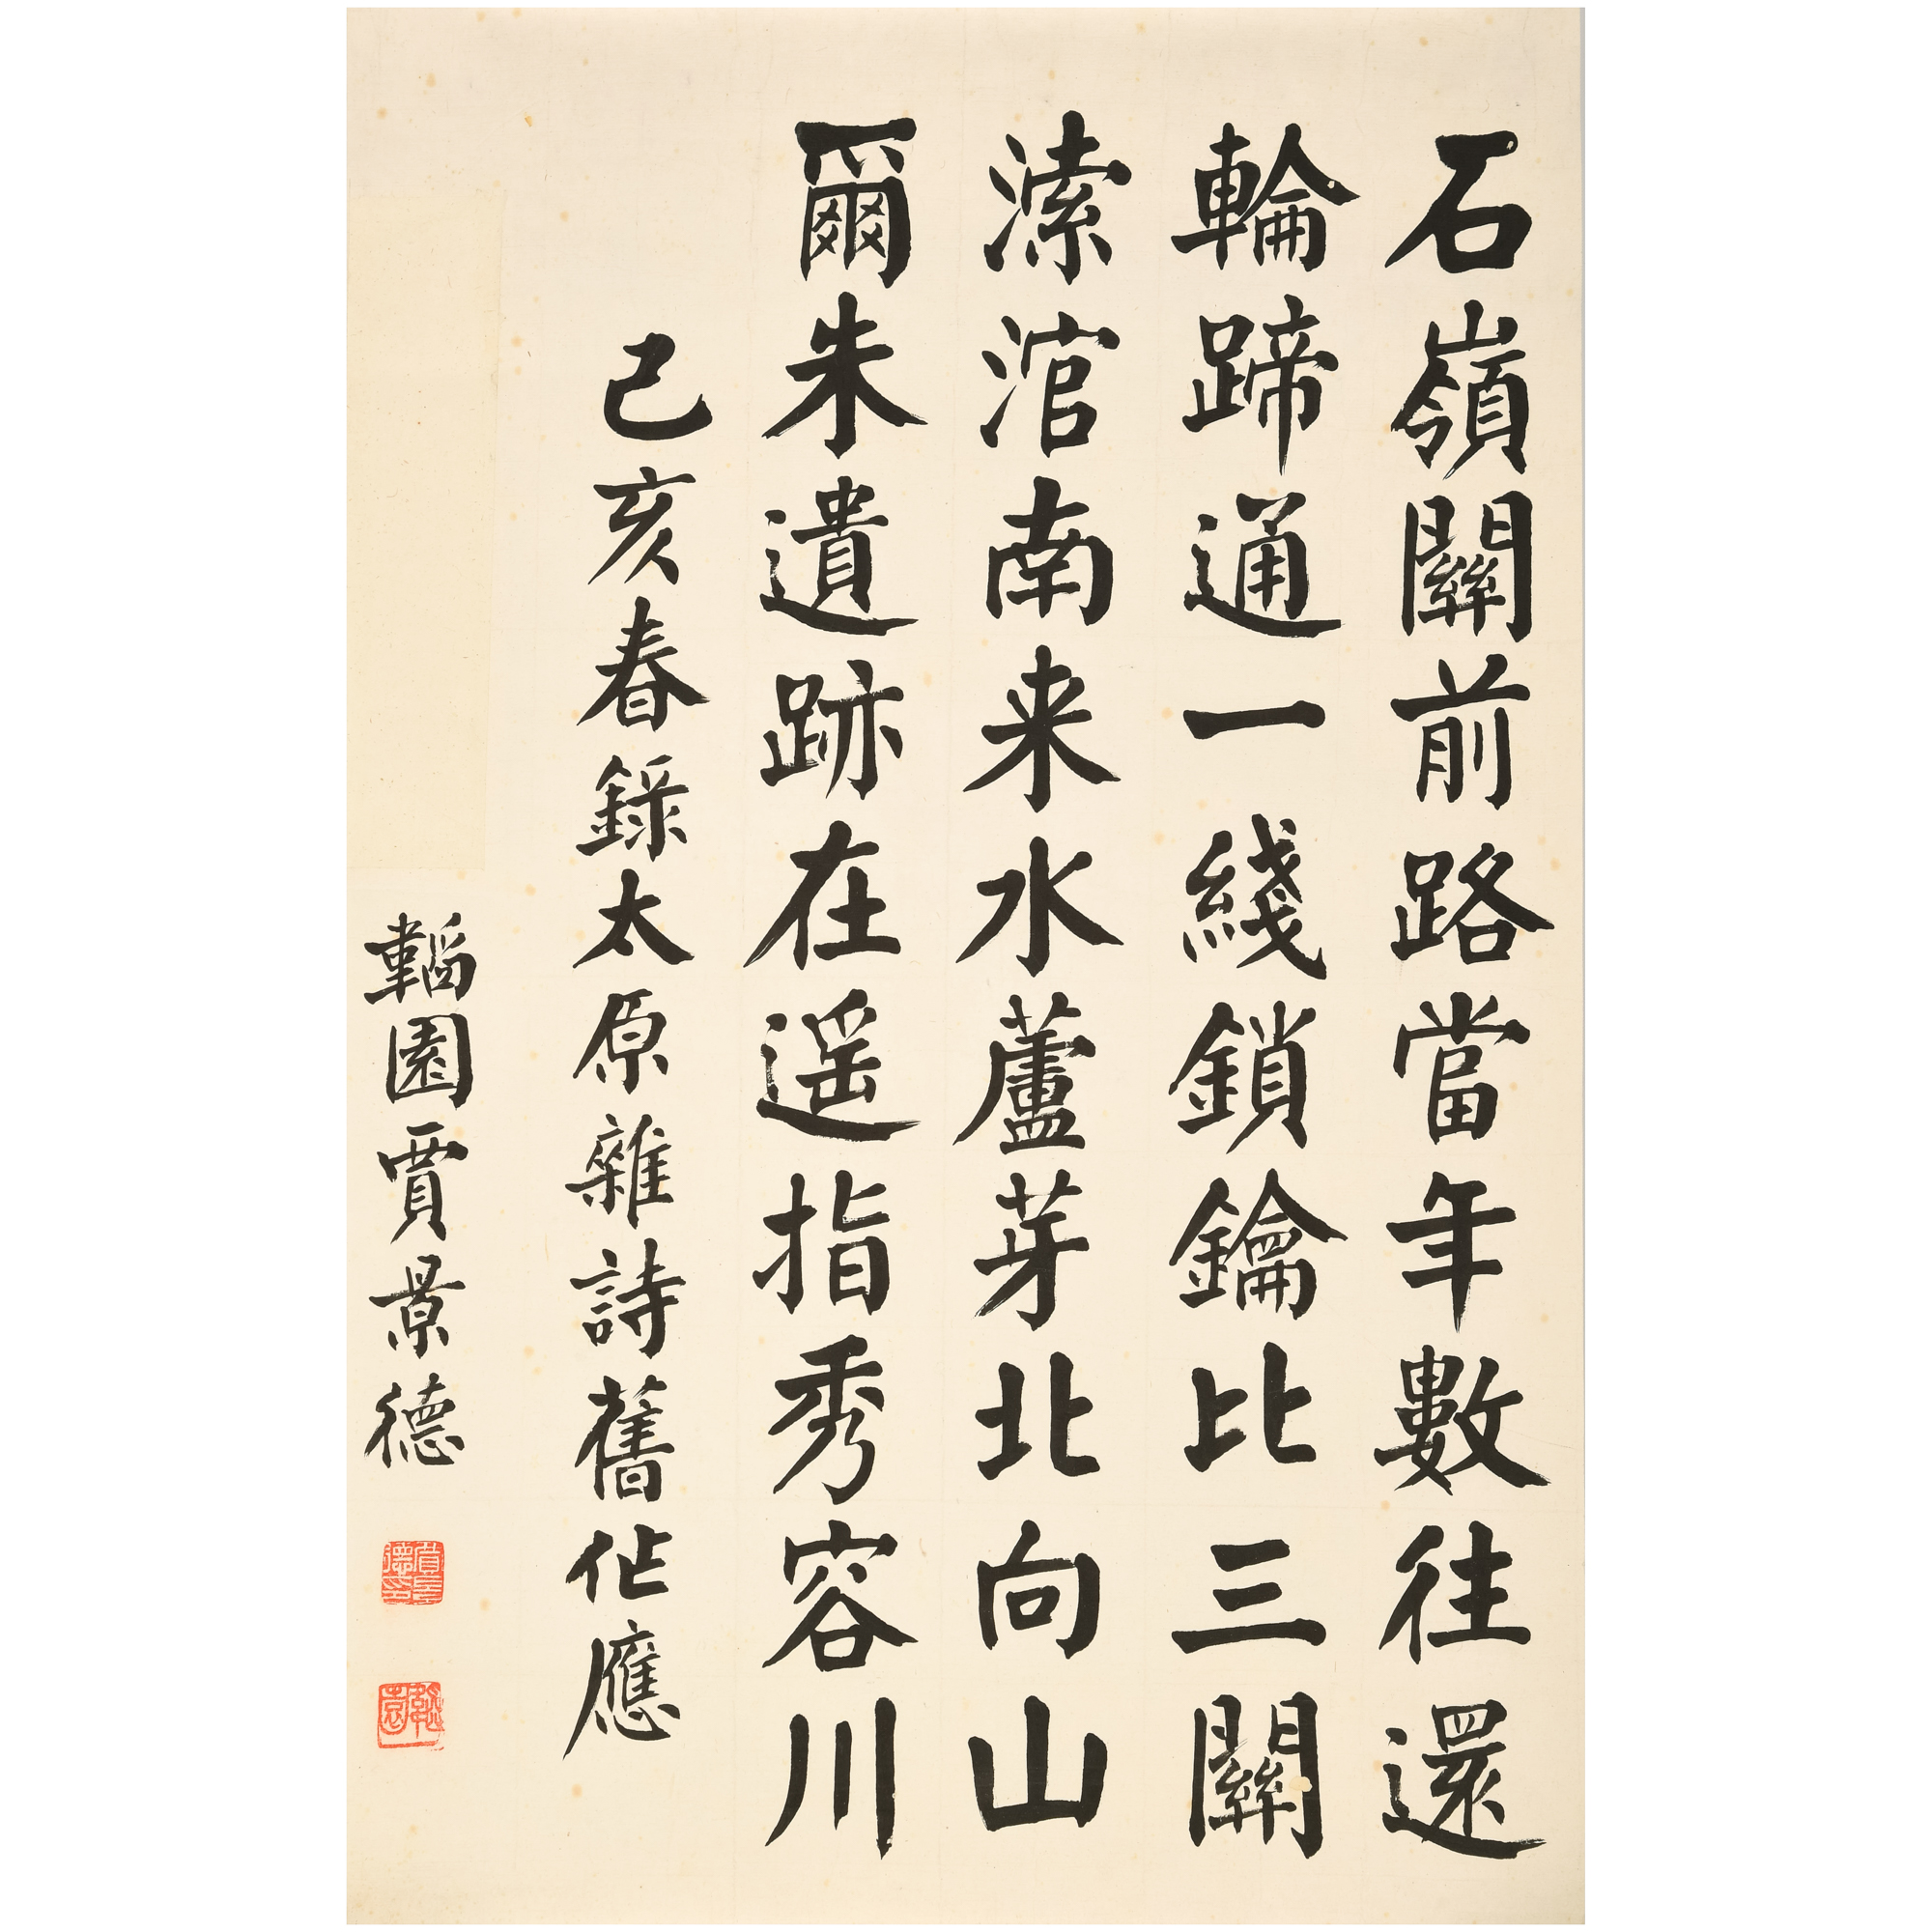 石嶺關前路當年數往還
輪蹄通一綫鎖鑰比三關
溹涫南来水蘆芽北向山
爾朱遺跡在遥指秀容川
己亥春錄太原雜詩舊作應
韜園賈景德